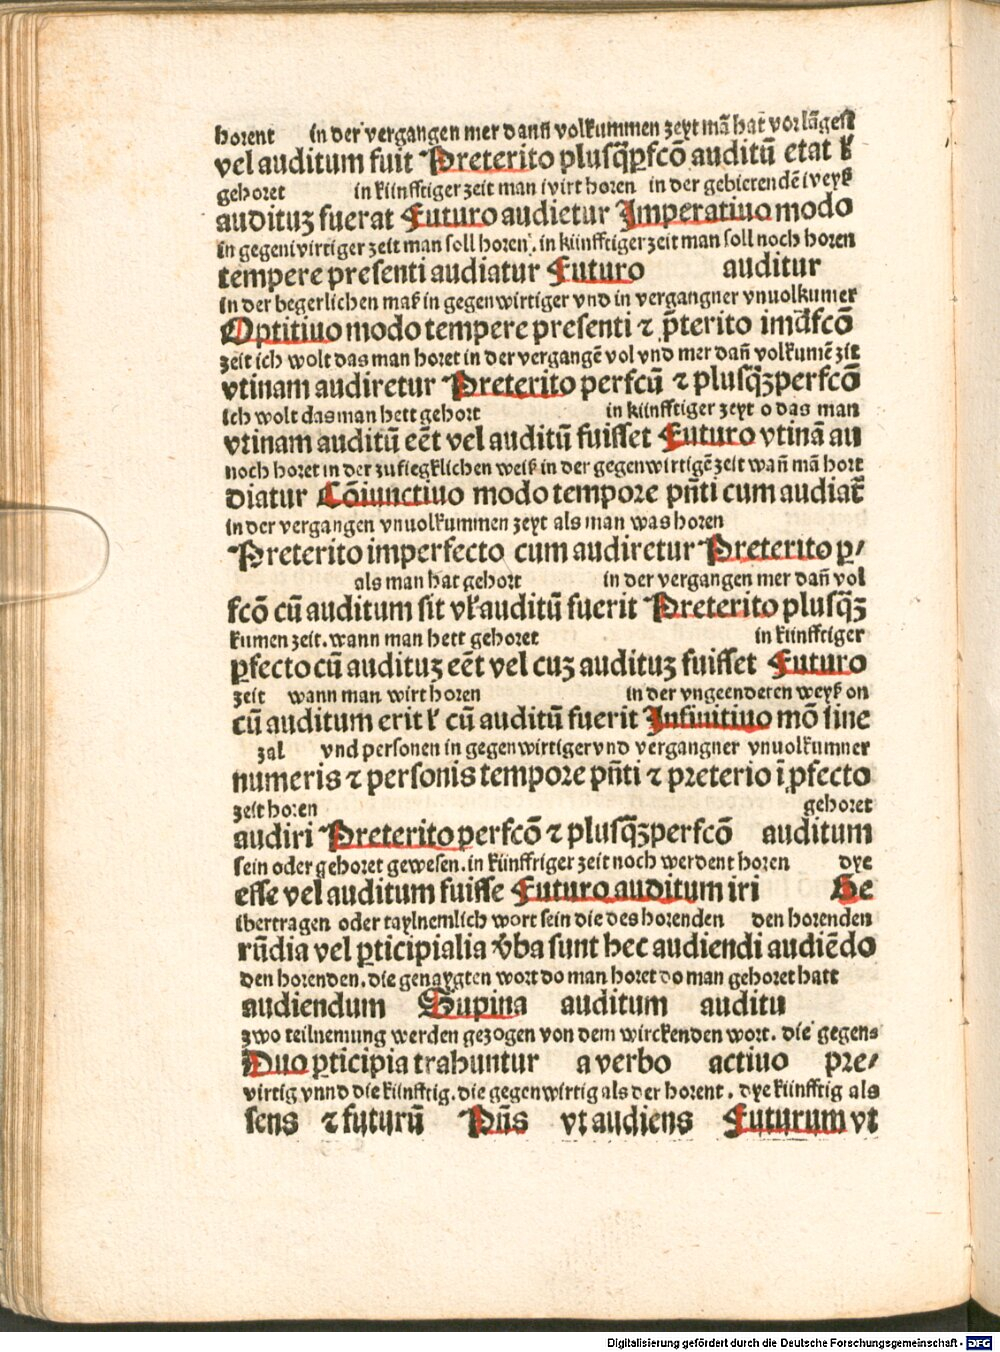 horent in der vergangen mer dann̄ volkummen zeyt mā hat vorlāgest
vel auditum fuit Preterito plusq̄ꝑfcō auditū etat ł
gehoret in künfftiger zeit man wirt horen in der gebietendē weyß
audituꝫ fuerat Futuro audietur Imperatiuo modo
in gegenwirtiger zeit man soll horen. in künfftiger zeit man soll noch horen
tempere presenti audiatur Futuro auditur
in der begerlichen maß in gegenwirtiger vnd in vergangner vnuolkumer
Optitiuo modo tempere presenti ⁊ p̄terito imꝑfcō
zeit ich wolt das man horet in der vergangē vol vnd mer dañ volkumē zit
vtinam audiretur Preterito perfcū ⁊ plusq̄ꝫperfcō
ich wolt das man hett gehort in künfftiger zeyt o das man
vtinam auditū eēt vel auditū fuisset Futuro vtinā au
noch horet in der zufiegklichen weiß in der gegenwirtigē zeit wañ mā hort
diatur Cōiunctiuo modo tempore pñti cum audiat̄
in der vergangen vnuolkummen zeyt als man was horen
Preterito imperfecto cum audiretur Preterito ꝑ⸗
als man hat gehort in der vergangen mer dañ vol
fcō cū auditum sit vł auditū fuerit Preterito plusq̄ꝫ
kumen zeit. wann man hett gehoret in künfftiger
ꝑfecto cū audituꝫ eēt vel cuꝫ audituꝫ fuisset Futuro
zeit wann man wirt horen in der vngeendeten weyß on
cū auditum erit ł cū auditū fuerit Infinitiuo mō sine
zal vnd personen in gegenwirtiger vnd vergangner vnuolkumner
numeris ⁊ personis tempore pñti ⁊ preterio īpfecto
zeit horen gehoret
audiri Preterito perfcō ⁊ plusq̄ꝫperfcō auditum
sein oder gehoret gewesen. in künfftiger zeit noch werdent horen dye
esse vel auditum fuisse Futuro auditum iri Ge
ibertragen oder taylnemlich wort sein die des horenden den horenden
rūdia vel ꝑticipialia v̄ba sunt hec audiendi audiēdo
den horenden. die genaygten wort do man horet do man gehoret hatt
audiendum Supina auditum auditu
zwo teilnemung werden gezogen von dem wirckenden wort. die gegen⸗
Duo ꝑticipia trahuntur a verbo actiuo pre⸗
wirtig vnnd die künfftig. die gegenwirtig als der horent. dye künfftig als
sens ⁊ futurū Pñs vt audiens Futurum vt
Digitalisierung gefördert durch die Deutsche Forschungsgemeinschaft - DFG